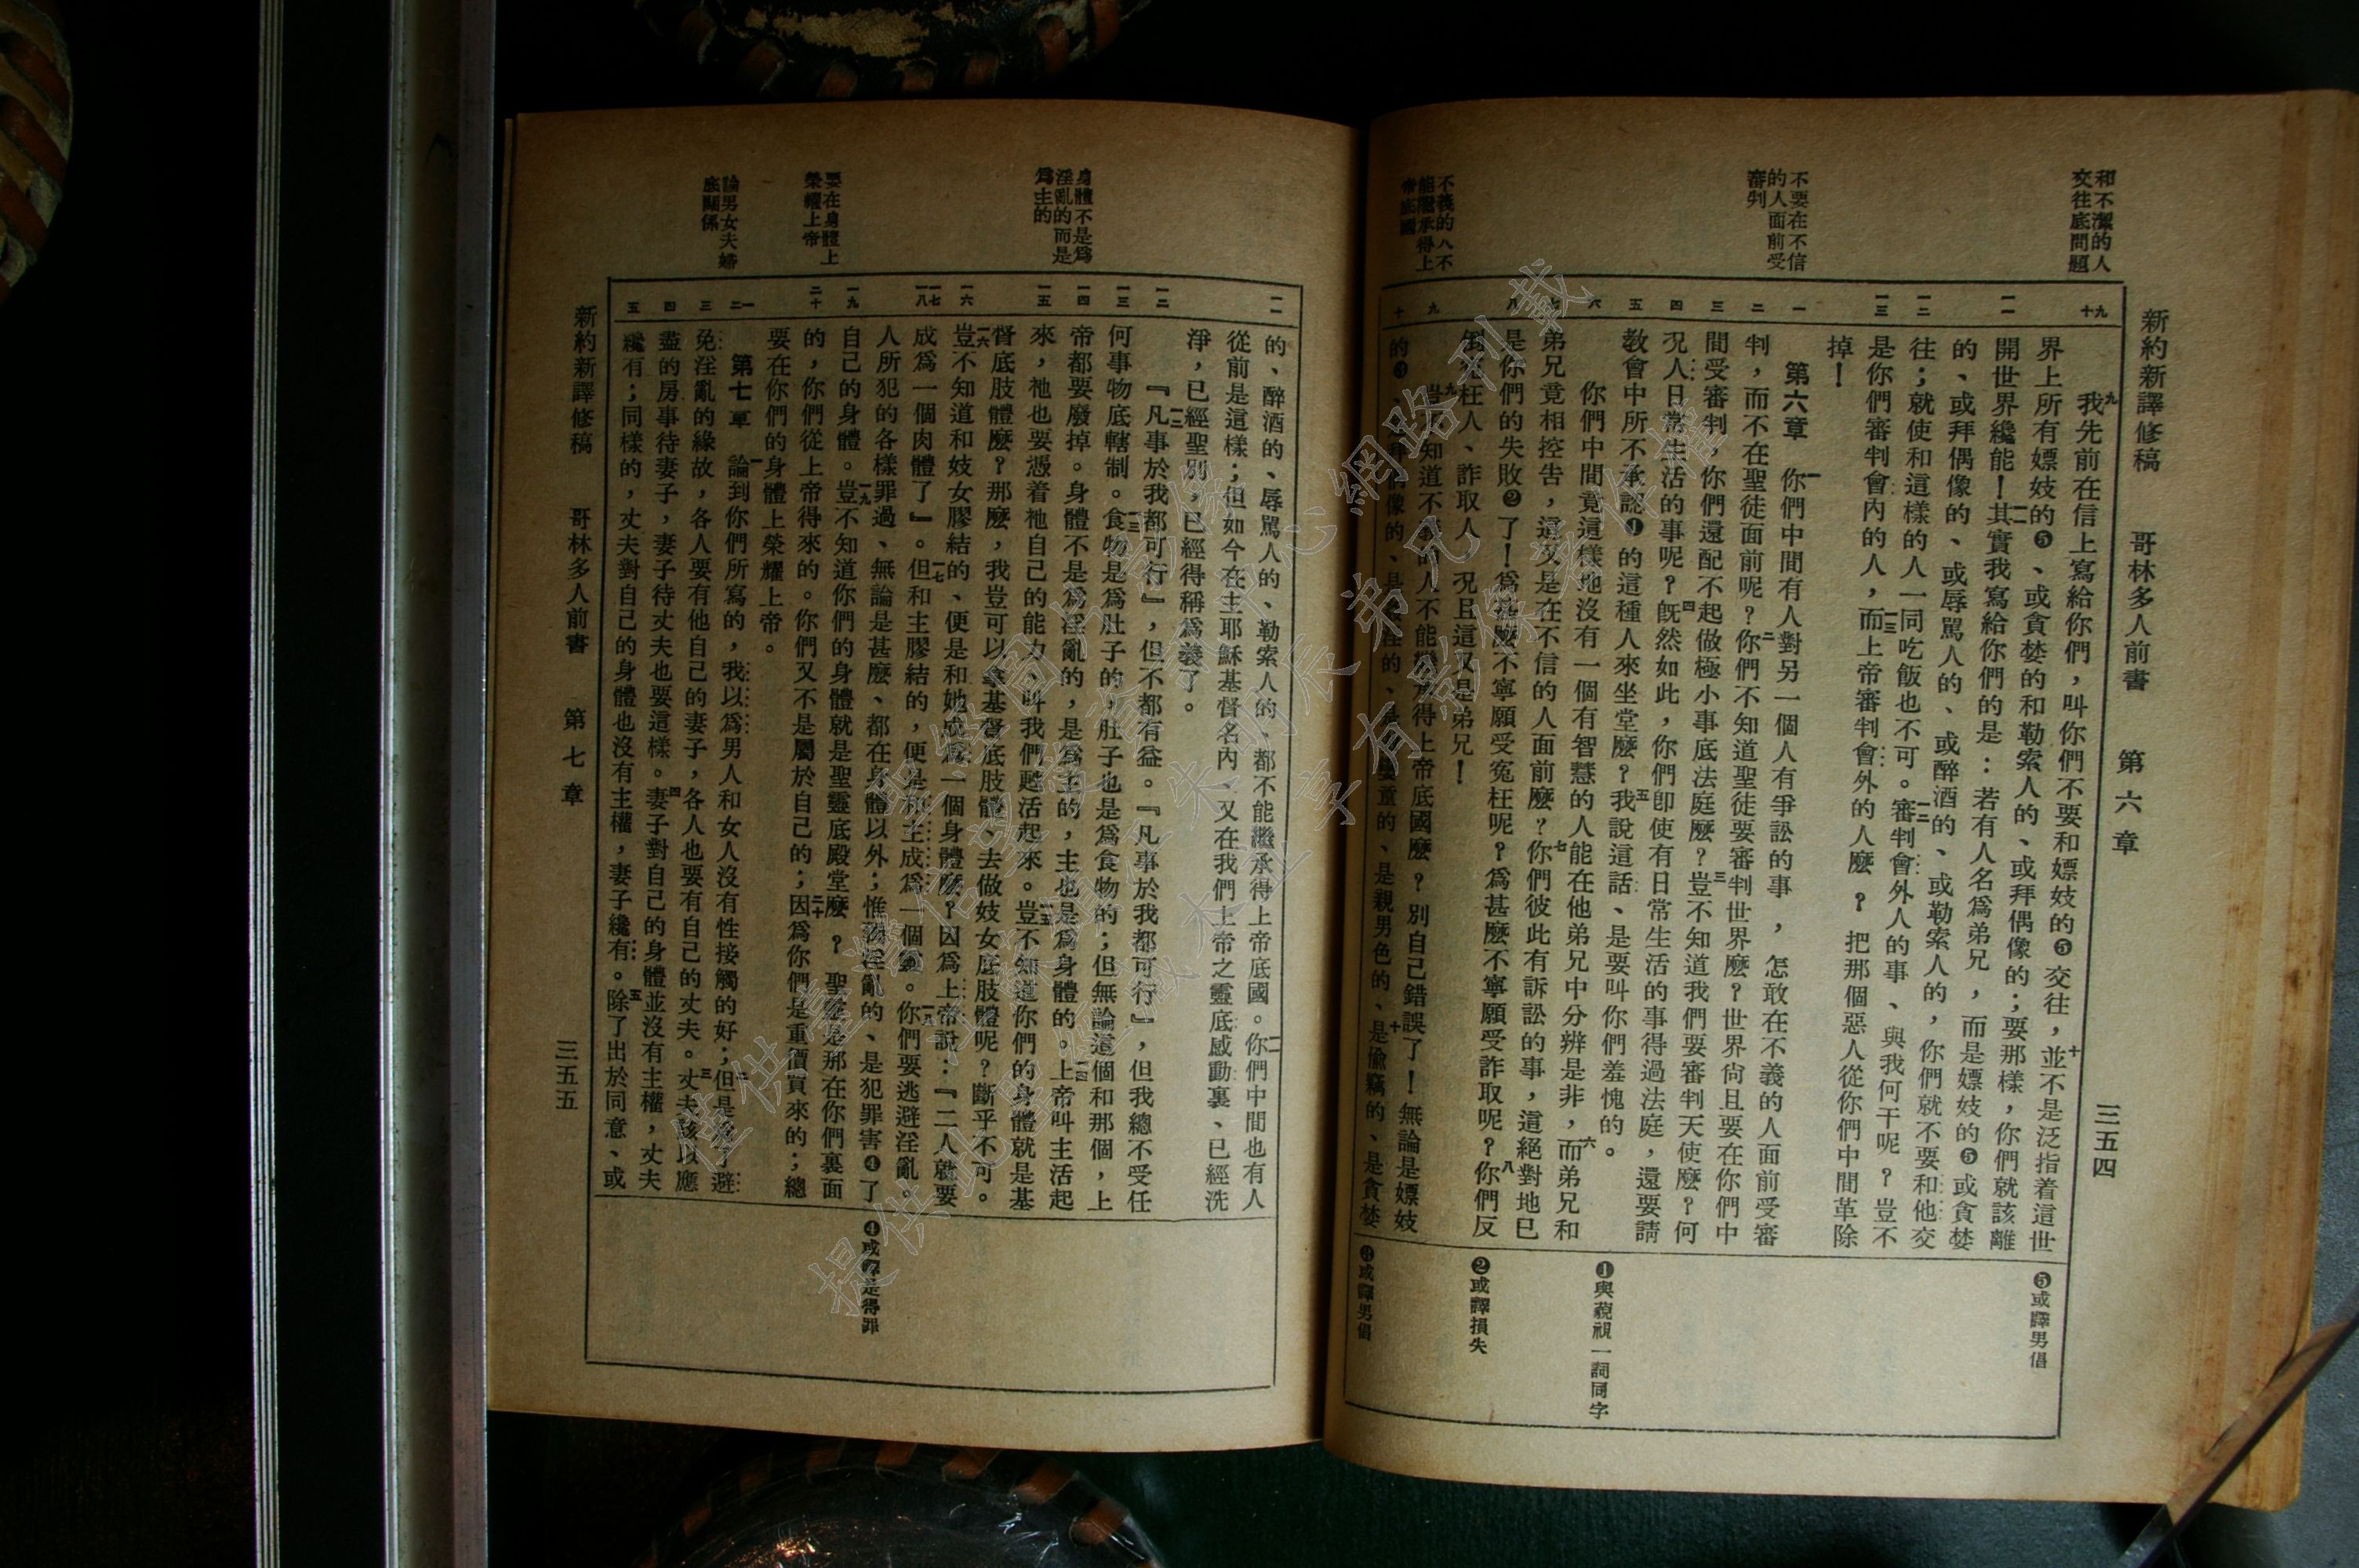 新約新譯修稿　哥林多人前書　第六章　三五四
和不潔的人
交往底問題
不要在不信
的人面前受
審判
不義的人不
能繼承得上
帝底國
九十
一一
一二
一三
一
二
三
四
五
六
七
八
九
十
九我先前在信上寫給你們，叫你們不要和嫖妓的❺交往，十並不是泛指着這世
界上所有嫖妓的❺、或貪婪的和勒索人的、或拜偶像的；要那樣，你們就該離
開世界纔能！一一其實我寫給你們的是：若有人名爲弟兄，而是嫖妓的❺或貪婪
的、或拜偶像的、或辱罵人的、或醉酒的、或勒索人的，你們就不要和他交
往；就使和這樣的人一同吃飯也不可。一二審判會外人的事、與我何干呢？豈不
是你們審判會內的人，一三而上帝審判會外的人麼？把那個惡人從你們中間革除
掉！
第六章　一你們中間有人對另一個人有爭訟的事，怎敢在不義的人面前受審
判，而不在聖徒面前呢？二你們不知道聖徒要審判世界麼？世界尙且要在你們中
間受審判，你們還配不起做極小事底法庭麼？三豈不知道我們要審判天使麼？何
况人日常生活的事呢？四旣然如此，你們卽使有日常生活的事得過法庭，還要請
教會中所不承認❶的這種人來坐堂麼？五我說這話、是要叫你們羞愧的。
你們中間竟這樣地沒有一個有智慧的人能在他弟兄中分辨是非，六而弟兄和
弟兄竟相控告，這又是在不信的人面前麼？七你們彼此有訴訟的事，這絕對地已
是你們的失敗❷了！爲甚麼不寧願受冤枉呢？爲甚麼不寧願受詐取呢？八你們反
倒冤枉人、詐取人，况且這又是弟兄！
九豈不知道不義的人不能繼承得上帝底國麼？別自己錯誤了！無論是嫖妓
的❸、是拜偶像的、是姦淫的、是孌童的、是親男色的、十是偸竊的、是貪婪
❺或譯男倡
❶與藐視一詞同字
❷或譯損失
❸或譯男倡
身體不是爲
淫亂的而是
爲主的
要在身體上
榮耀上帝
論男女夫婦
底關係
一一
一二
一三
一四
一五
一六
一七
一八
一九
二十
一
二
三
四
五
的、醉酒的、辱罵人的、勒索人的、都不能繼承得上帝底國。一一你們中間也有人
從前是這樣；但如今在主耶穌基督名內、又在我們上帝之靈底感動裏、已經洗
淨，已經聖別，已經得稱爲義了。
一二『凡事於我都可行』，但不都有益。『凡事於我都可行』，但我總不受任
何事物底轄制。一三食物是爲肚子的，肚子也是爲食物的；但無論這個和那個，上
帝都要廢掉。身體不是爲淫亂的，是爲主的，主也是爲身體的。一四上帝叫主活起
來，祂也要憑着祂自己的能力、叫我們甦活起來。一五豈不知道你們的身體就是基
督底肢體麼？那麼，我豈可以拿基督底肢體、去做妓女底肢體呢？斷乎不可。
一六豈不知道和妓女膠結的、便是和她成爲一個身體麼？因爲上帝說：『二人就要
成爲一個肉體了』。一七但和主膠結的，便是和主成爲一個靈。一八你們要逃避淫亂。
人所犯的各樣罪過、無論是甚麼、都在身體以外；惟獨淫亂的、是犯罪害❹了
自己的身體。一九豈不知道你們的身體就是聖靈底殿堂麼？聖靈是那在你們裏面
的，你們從上帝得來的。你們又不是屬於自己的；二十因爲你們是重價買來的；總
要在你們的身體上榮耀上帝。
第七章　一論到你們所寫的，我以爲男人和女人沒有性接觸的好；二但是爲了避
免淫亂的緣故，各人要有他自己的妻子，各人也要有自己的丈夫。三丈夫該以應
盡的房事待妻子，妻子待丈夫也要這樣。四妻子對自己的身體並沒有主權，丈夫
纔有；同樣的，丈夫對自己的身體也沒有主權，妻子纔有。五除了出於同意、或
❹或譯是得罪
新約新譯修稿　哥林多人前書　第七章　三五五
僅供臺灣信望愛資訊中心網路刊載
提供此聖經藏本
享有影像著作權